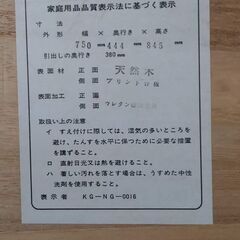 家庭用品品質表示法に基づく表示
寸法
外形 幅×奥行き×高さ
750 444 845 mm
引出しの奥行き 380mm
表面材 正面 天然木
側面 プリント合板
表面加工 正面
側面 ウレタン
取扱い上の注意
イ すえ付けに際しては、湿気の多いところを
避け、たんすを水平に保つために必要な措置
を講ずること。
ロ 直射日光又は熱を避けること。
ハ 著しい汚れを落とす場合は、うすめた中性
洗剤を使用すること。
表示者 KG-NG-0016